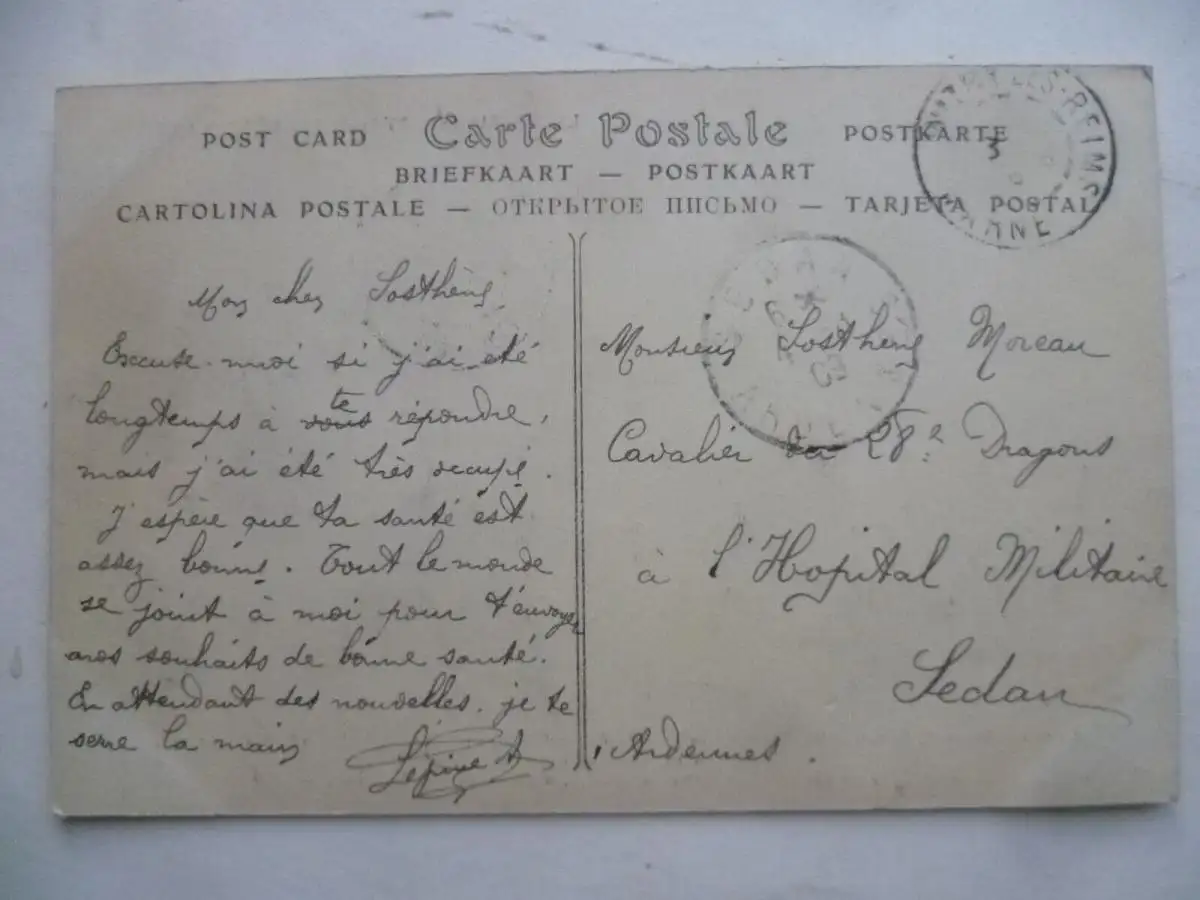 POST CARD Carte Postale POSTKARTE
BRIEFKAART — POSTKAART
CARTOLINA POSTALE — ОТКРЫТОЕ ПИСЬМО — TARJETA POSTAL
REIMS
MARNE
Mon cher Sosthène
Excuse-moi si j'ai été
longtemps à te répondre,
mais j'ai été très occupé.
J'espère que ta santé est
assez bonne. Tout le monde
se joint à moi pour t'envoyer
nos souhaits de bonne santé.
En attendant des nouvelles. je te
serre la main
Lépine A
Monsieur Sosthène Moreau
Cavalier au 28e Dragons
à l'Hopital Militaire
Sedan
Ardennes.